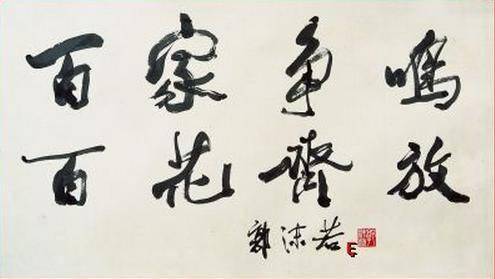 百家争鳴
百花齊放
郭沫若